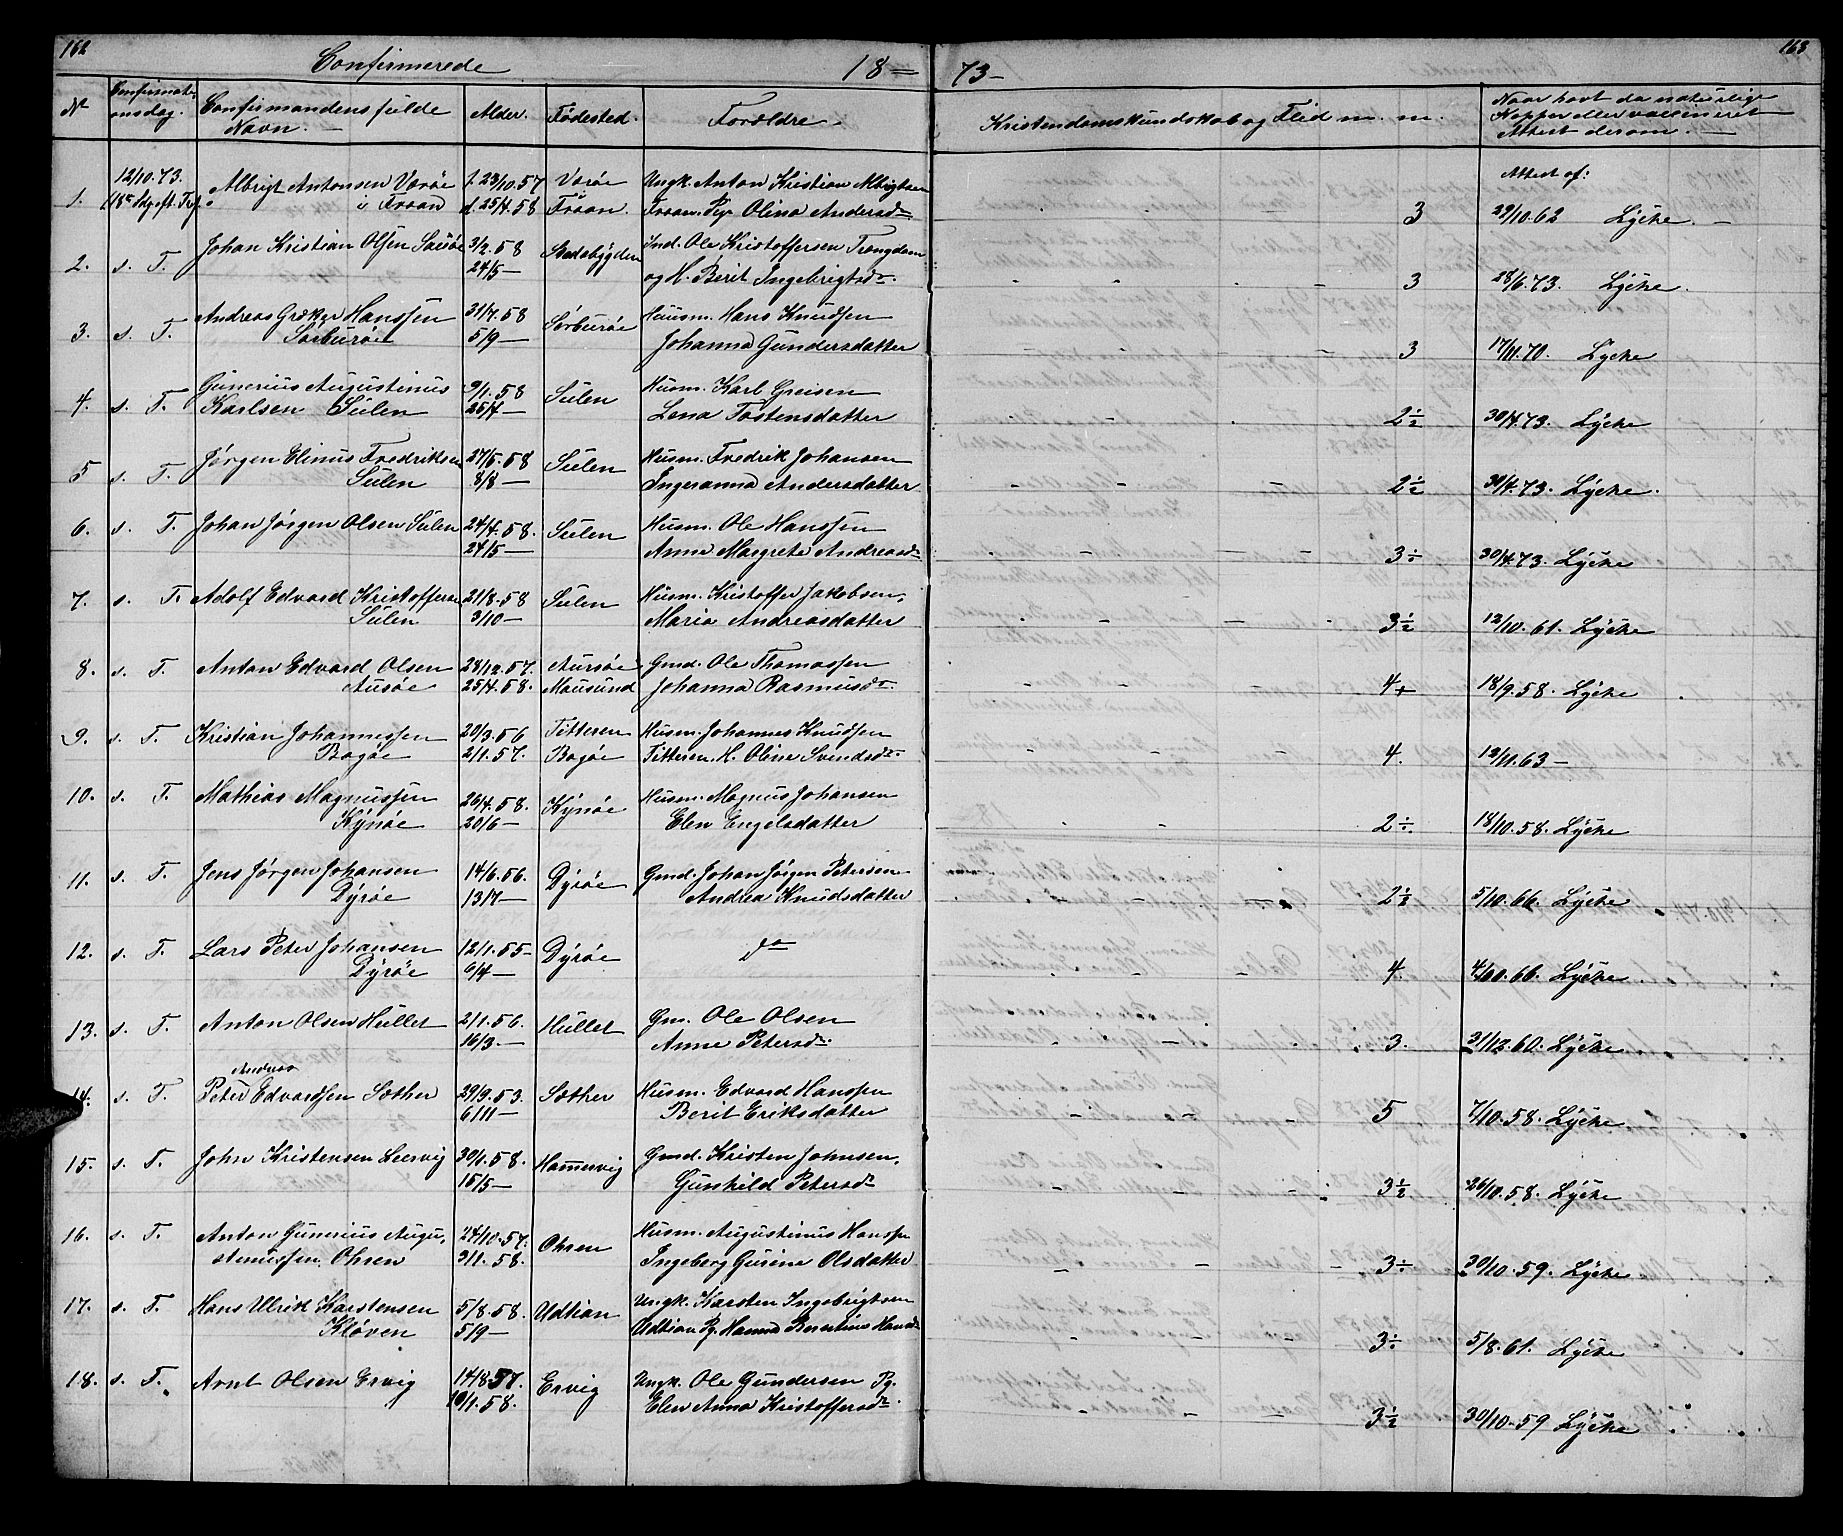 162
Confirmerede 18 = 73 -
163
No
Confirmations dag.
Confirmandens fulde Navn. -
Alder.
Fødested.
Forældre.
Kristendomskundskab og Flid m. m.
Naar havt da naturlige Kopper eller vaccineret Attest derom. -
1. 12/10.73. Albrigt Antonsen Værøe f. 23/10.57 Værøe Ungk. Anton Kristian Albrigtsen Attest af:
i Froan d. 25/4.58 Froan. Froan. Pige Olina Andersdr 3 29/10.62 Lÿcke. -
2. s. T. Johan Kristian Olsen 3/2.58 Stadsbygden Ind. Ole Kristoffersen
24/5 - og H. Berit Ingebrigtsdr. 3 28/6.73. Lÿcke.
3. s. T. Andreas Hanssen 31/7.58 Sørburøe Huusm. Hans Knudsen
Sørburøe 5/9 - Johanna Gundersdatter 3 17/11.70. Lÿcke
4. s. T. Gunerius Augustinus 9/1.58 Sulen Husm. Karl Greisen
Karlsen Sulen 25/4 - Lena Tostensdatter 2÷ 30/4.73. Lÿcke
5 s. T. Jørgen Elinus Fredriksen 27/5.58 Sulen Husm. Fredrik Johansen
Sulen 8/8 - Ingeranna Andersdatter 2½ 30/4.73. Lÿcke.
6. s. T. Johan Jørgen Olsen Sulen 24/4.58. Sulen Husm. Ole Hanssen
24/5 - Anne Margrete Andreasdr 3÷ 30/4.73. Lÿcke
7. s. T. Adolf Edvard Kristoffersen 21/8.58 Sulen Husm. Kristoffer Jakobsen,
Sulen 3/10 - Maria Andreasdatter 3½ 12/10.61. Lÿcke
8. s. T. Anton Edvard Olsen 28/12.57. Aursøe Gmd. Ole Thomassen
Ausøe 25/4.58. Mausund Johanna Rasmusdr. 4+ 18/9.58. Lÿcke
9. s. T. Kristian Johannessen 20/3.56 Titteren Husm. Johannes Knudsen
Bogøe 2/1.57. Bogøe Titteren. H. Oline Svendsdr 4. 12/11.63 -
10. s. T. Mathias Magnussen 26/4.58. Kÿnøe Husm. Magnus Johansen
Kÿnøe 20/6 - Elen Engelsdatter 2÷ 18/10.58. Lÿcke
11. s. T. Jens Jørgen Johansen 14/6.56. Dÿrøe Gmd. Johan Jørgen Petersen
Dÿrøe 13/7 - Andrea Knudsdatter 2½ 5/10.66. Lÿcke
12. s. T. Lars Peter Johansen 12/1.55 - Dÿrøe do
Dÿrøe 6/4 - 4. 4/10.66. Lÿcke
13. s. T. Anton Olsen Hullet 2/1.56. Hullet Gm. Ole Olsen
16/3. - Anne Petersdr. 3. 31/12.60. Lÿcke
14. s. T. Peter Andreas Edvardsen Sæther 29/9.53. Sæther Husm. Edvard Hanssen
6/11 - Berit Eriksdatter 5 7/10.58. Lÿcke
15. s. T. John Kristensen Leervig 30/1.58. Hamervig Gmd. Kristen Johnsen,
15/5 - Gunhild Petersdr 3½ 26/10.58. Lÿcke
16. s. T. Anton Gunerius Augu- 24/10.57. Ohsen Husm. Augustinus Hanssen
stinussen, Ohsen 3/1.58. Ingeborg Gurine Olsdatter 3÷ 30/10.59. Lÿcke
17. s. T. Hans Ulrik Karstensen 5/8.58. Udtian Ungk. Karsten Ingebrigtsen
Kløven 5/9 - Udtian Pg. Hanna Berentine Hansdr 3÷ 5/8.61. Lÿcke
18. s. T. Arnt Olsen Ervig 14/8 57. Ervig Ungk. Ole Gundersen Pg.
10/1.58. Elen Anna Kristoffersdr. 3½ 30/10.59 Lÿcke